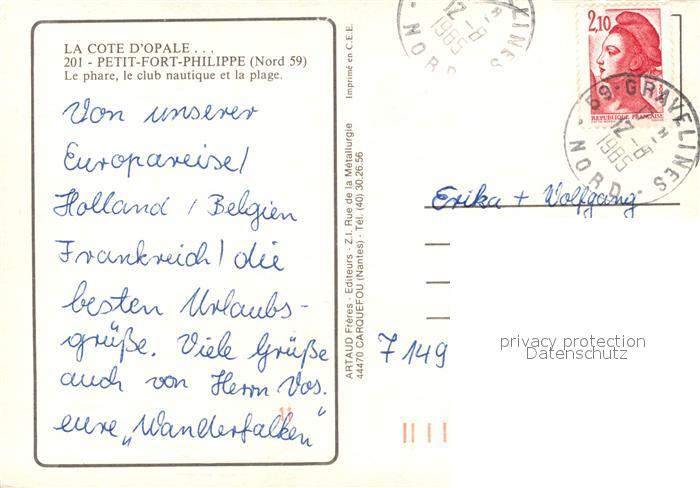 LA COTE D'OPALE . . .
201 - PETIT-FORT-PHILIPPE (Nord 59)
Le phare, le club nautique et la plage.
Von unserer
Europareise/
Holland / Belgien
Frankreich / die
besten Urlaubs-
grüße. Viele Grüße
auch von Herrn Vos.
eure „Wanderfalken"
Imprimé en C.E.E.
ARTAUD Frères - Editeurs - Z.I. Rue de la Métallurgie
44470 CARQUEFOU (Nantes) - Tél. (40) 30.26.56
2,10
REPUBLIQUE FRANÇAISE
59-GRAVELINES
17 H
12-8
1985
NORD
Erika + Wolfgang
7149
privacy protection
Datenschutz